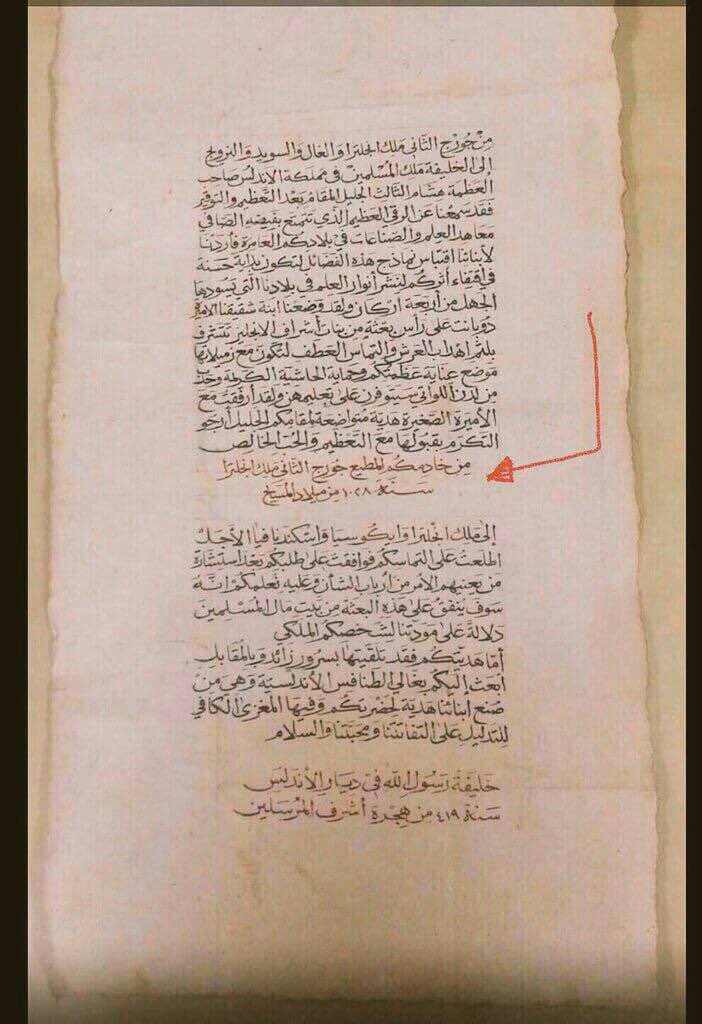 من جورج الثاني ملك انجلترا والغال والسويد والنرويج
إلى الخليفة ملك المسلمين في مملكة الأندلس صاحب
العظمة هشام الثالث الجليل المقام بعد التعظيم والتوقير
فقد سمعنا عن الرقي العظيم الذي تتمتع بفيضه الصافي
معاهد العلم والصناعات في بلادكم العامرة فأردنا
لأبنائنا اقتباس نماذج هذه الفضائل لتكون بداية حسنة
في اقتفاء أثركم لنشر أنوار العلم في بلادنا التي يسودها
الجهل من أربعة أركان ولقد وضعنا ابنة شقيقنا الأميرة
دوبانت على رأس بعثة من بنات أشراف الانجليز تتشرف
بلثم أهداب العرش والتماس العطف لتكون مع زميلاتها
موضع عناية عظمتكم وحماية الحاشية الكريمة وحدب
من لدن اللواتي سيتوفرن على تعليمهن ولقد أرفقت مع
الأميرة الصغيرة هدية متواضعة لمقامكم الجليل أرجو
التكرم بقبولها مع التعظيم والحب الخالص
من خادمكم المطيع جورج الثاني ملك انجلترا
سنة ١٠٢٨ من ميلاد المسيح
إلى ملك انجلترا وايكوسيا واسكندنافيا الأجل
اطلعت على التماسكم فوافقت على طلبكم بعد استشارة
من يعنيهم الأمر من أرباب الشأن وعليه نعلمكم انه
سوف ينفق على هذه البعثة من بيت مال المسلمين
دلالة على مودتنا لشخصكم الملكي
أما هديتكم فقد تلقيتها بسرور زائد وبالمقابل
ابعث إليكم بغالي الطنافس الأندلسية وهي من
صنع ابنائنا هدية لحضرتكم وفيها المغزى الكافي
للتدليل على التفاتتنا ومحبتنا والسلام
خليفة رسول الله في ديار الأندلس
سنة ٤١٩ من هجرة أشرف المرسلين